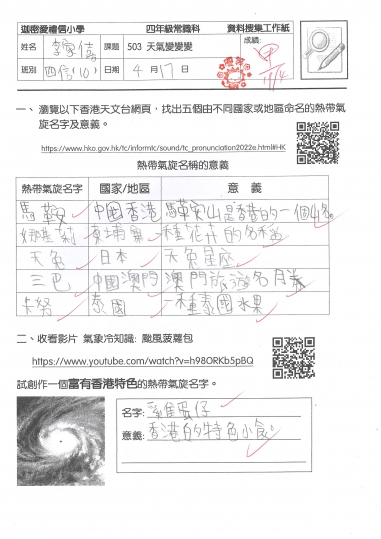 迦密愛禮信小學 四年級常識科 資料搜集工作紙
姓名 李家僖 課題 503 天氣變變變 成績: 甲
班別 四信(10) 日期 4 月 17 日
一、 瀏覽以下香港天文台網頁，找出五個由不同國家或地區命名的熱帶氣
旋名字及意義。
https://www.hko.gov.hk/tc/informtc/sound/tc_pronunciation2022e.html#HK
熱帶氣旋名稱的意義
熱帶氣旋名字 國家/地區 意 義
馬鞍 中國香港 馬鞍山是香港的一個山名。
娜基莉 柬埔寨 一種花卉的名稱
天兔 日本 天兔星座
三巴 中國澳門 澳門旅遊名
卡努 泰國 一種泰國水果
二、收看影片 氣象冷知識: 颱風菠蘿包
https://www.youtube.com/watch?v=h98ORKb5pBQ
試創作一個富有香港特色的熱帶氣旋名字。
名字: 雞蛋仔
意義: 香港的特色小食。